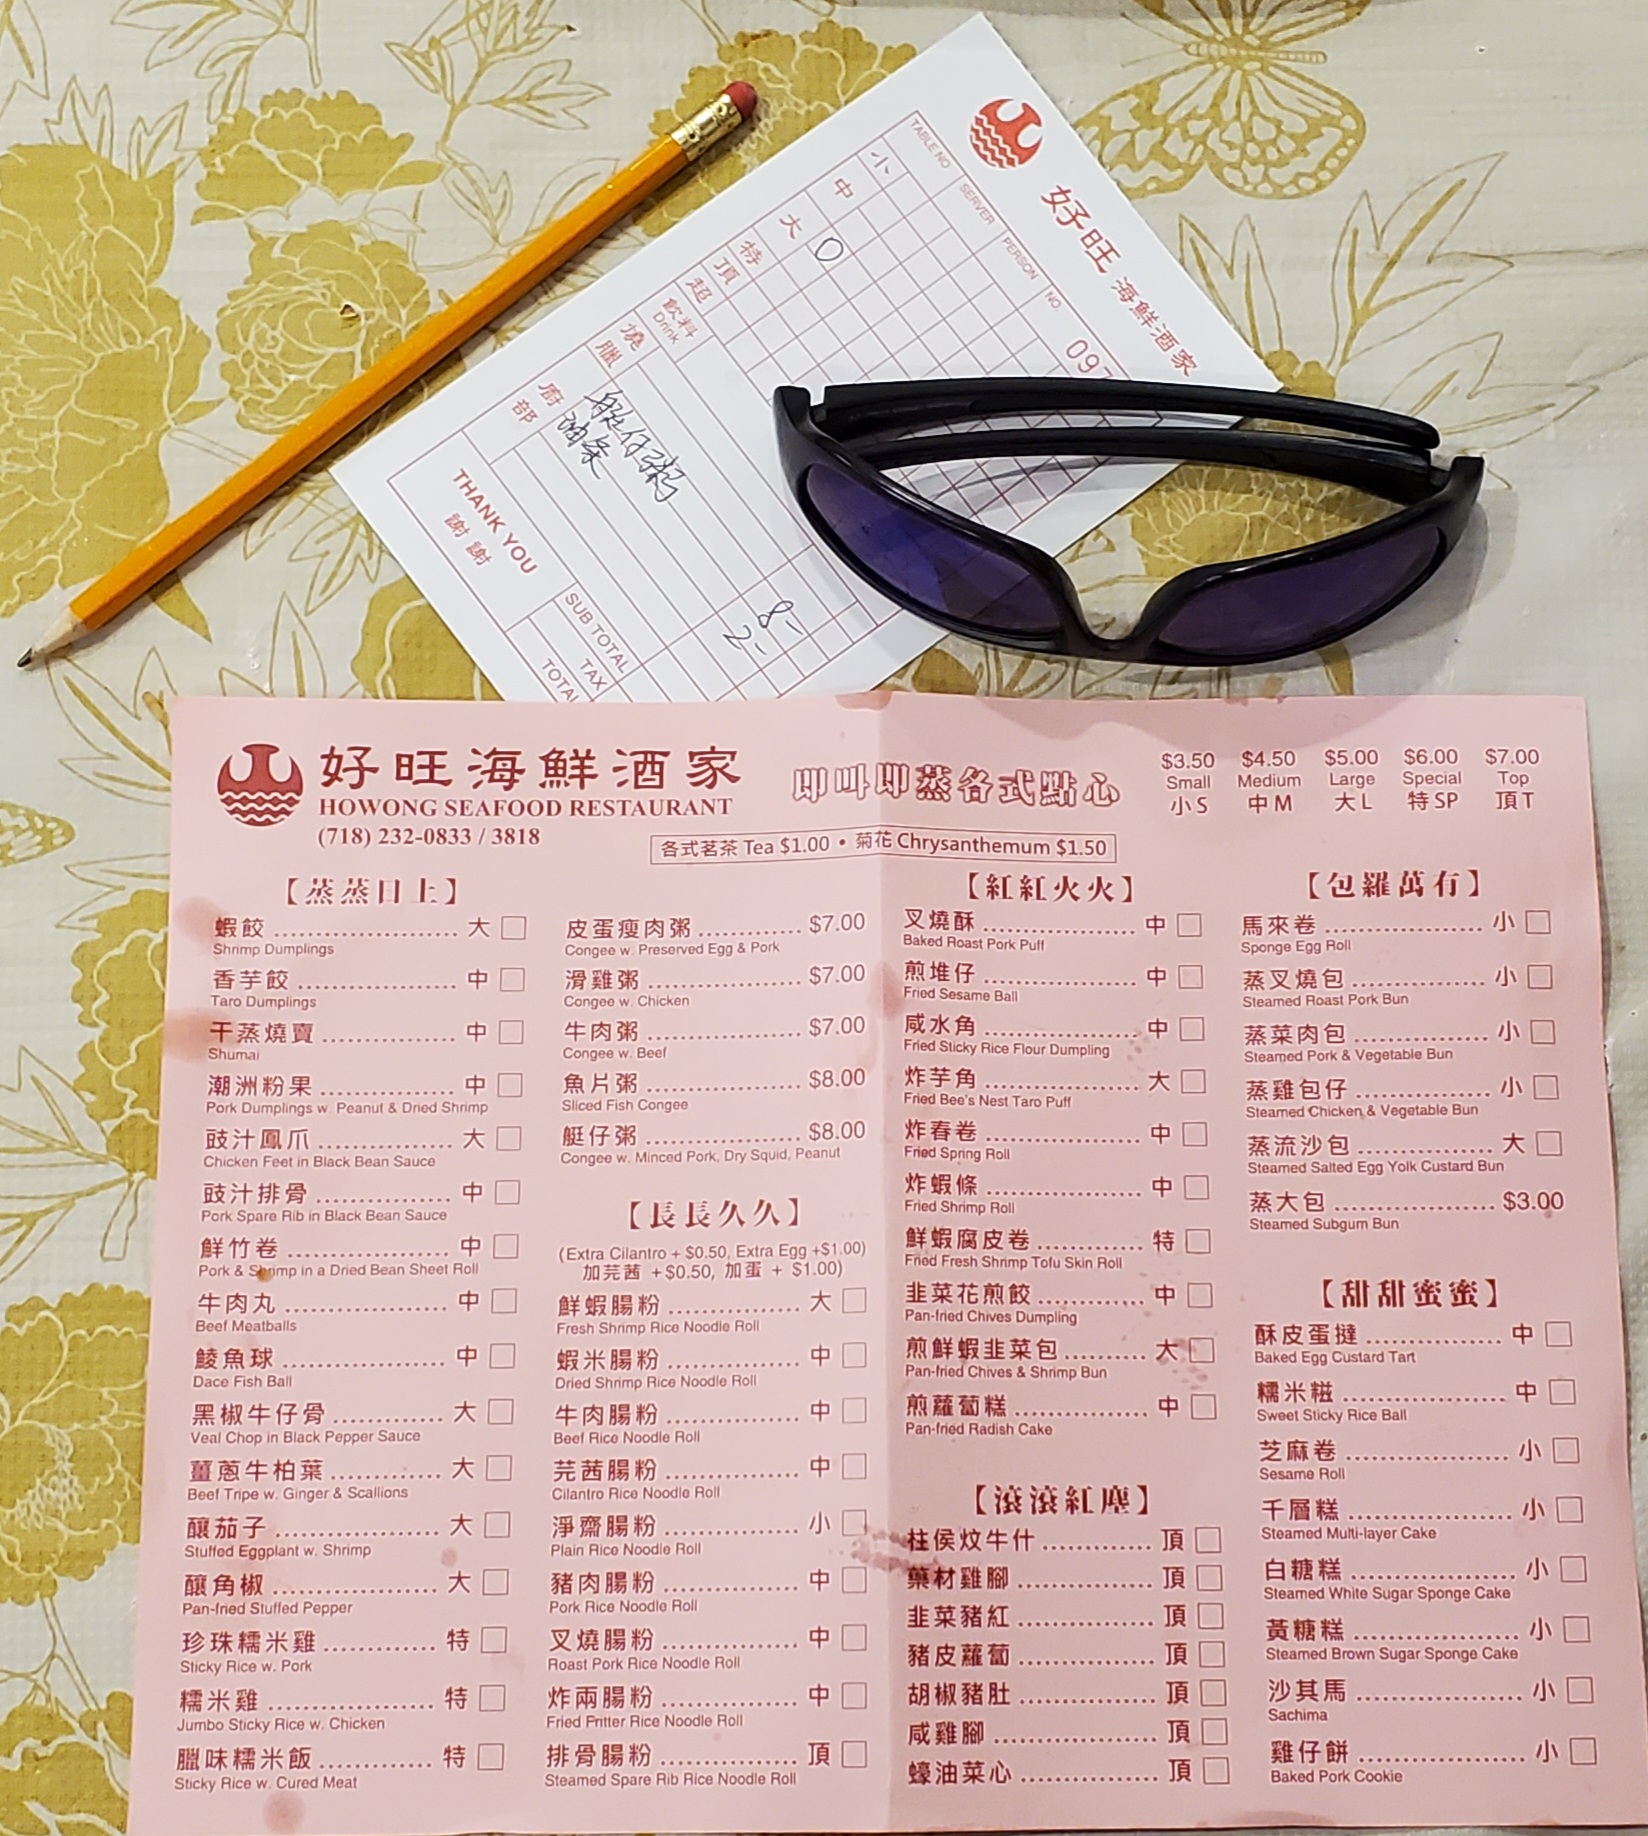 好旺 海鮮酒家
TABLE NO
SERVER
PERSON
NO.
097
小
中
大 0
特
頂
超
飲料
Drink
燒臘
廚部
艇仔粥 8-
油条 2-
THANK YOU
謝謝
SUB TOTAL
TAX
TOTAL
好旺海鮮酒家
HOWONG SEAFOOD RESTAURANT
(718) 232-0833 / 3818
即叫即蒸各式點心
各式茗茶 Tea $1.00 • 菊花 Chrysanthemum $1.50
$3.50 $4.50 $5.00 $6.00 $7.00
Small Medium Large Special Top
小S 中M 大L 特SP 頂T
【蒸蒸日上】
蝦餃 ........ 大
Shrimp Dumplings
香芋餃 ........ 中
Taro Dumplings
干蒸燒賣 ........ 中
Shumai
潮洲粉果 ........ 中
Pork Dumplings w. Peanut & Dried Shrimp
豉汁鳳爪 ........ 大
Chicken Feet in Black Bean Sauce
豉汁排骨 ........ 中
Pork Spare Rib in Black Bean Sauce
鮮竹卷 ........ 中
Pork & Shrimp in a Dried Bean Sheet Roll
牛肉丸 ........ 中
Beef Meatballs
鯪魚球 ........ 中
Dace Fish Ball
黑椒牛仔骨 ........ 大
Veal Chop in Black Pepper Sauce
薑蔥牛柏葉 ........ 大
Beef Tripe w. Ginger & Scallions
釀茄子 ........ 大
Stuffed Eggplant w. Shrimp
釀角椒 ........ 大
Pan-fried Stuffed Pepper
珍珠糯米雞 ........ 特
Sticky Rice w. Pork
糯米雞 ........ 特
Jumbo Sticky Rice w. Chicken
臘味糯米飯 ........ 特
Sticky Rice w. Cured Meat
皮蛋瘦肉粥 ........ $7.00
Congee w. Preserved Egg & Pork
滑雞粥 ........ $7.00
Congee w. Chicken
牛肉粥 ........ $7.00
Congee w. Beef
魚片粥 ........ $8.00
Sliced Fish Congee
艇仔粥 ........ $8.00
Congee w. Minced Pork, Dry Squid, Peanut
【長長久久】
(Extra Cilantro + $0.50, Extra Egg +$1.00)
加芫茜 +$0.50, 加蛋 + $1.00)
鮮蝦腸粉 ........ 大
Fresh Shrimp Rice Noodle Roll
蝦米腸粉 ........ 中
Dried Shrimp Rice Noodle Roll
牛肉腸粉 ........ 中
Beef Rice Noodle Roll
芫茜腸粉 ........ 中
Cilantro Rice Noodle Roll
淨齋腸粉 ........ 小
Plain Rice Noodle Roll
豬肉腸粉 ........ 中
Pork Rice Noodle Roll
叉燒腸粉 ........ 中
Roast Pork Rice Noodle Roll
炸兩腸粉 ........ 中
Fried Fritter Rice Noodle Roll
排骨腸粉 ........ 頂
Steamed Spare Rib Rice Noodle Roll
【紅紅火火】
叉燒酥 ........ 中
Baked Roast Pork Puff
煎堆仔 ........ 中
Fried Sesame Ball
咸水角 ........ 中
Fried Sticky Rice Flour Dumpling
炸芋角 ........ 大
Fried Bee's Nest Taro Puff
炸春卷 ........ 中
Fried Spring Roll
炸蝦條 ........ 中
Fried Shrimp Roll
鮮蝦腐皮卷 ........ 特
Fried Fresh Shrimp Tofu Skin Roll
韭菜花煎餃 ........ 中
Pan-fried Chives Dumpling
煎鮮蝦韭菜包 ........ 大
Pan-fried Chives & Shrimp Bun
煎蘿蔔糕 ........ 中
Pan-fried Radish Cake
【滾滾紅塵】
柱侯炆牛什 ........ 頂
藥材雞腳 ........ 頂
韭菜豬紅 ........ 頂
豬皮蘿蔔 ........ 頂
胡椒豬肚 ........ 頂
咸雞腳 ........ 頂
蠔油菜心 ........ 頂
【包羅萬有】
馬來卷 ........ 小
Sponge Egg Roll
蒸叉燒包 ........ 小
Steamed Roast Pork Bun
蒸菜肉包 ........ 小
Steamed Pork & Vegetable Bun
蒸雞包仔 ........ 小
Steamed Chicken & Vegetable Bun
蒸流沙包 ........ 大
Steamed Salted Egg Yolk Custard Bun
蒸大包 ........ $3.00
Steamed Subgum Bun
【甜甜蜜蜜】
酥皮蛋撻 ........ 中
Baked Egg Custard Tart
糯米糍 ........ 中
Sweet Sticky Rice Ball
芝麻卷 ........ 小
Sesame Roll
千層糕 ........ 小
Steamed Multi-layer Cake
白糖糕 ........ 小
Steamed White Sugar Sponge Cake
黃糖糕 ........ 小
Steamed Brown Sugar Sponge Cake
沙其馬 ........ 小
Sachima
雞仔餅 ........ 小
Baked Pork Cookie